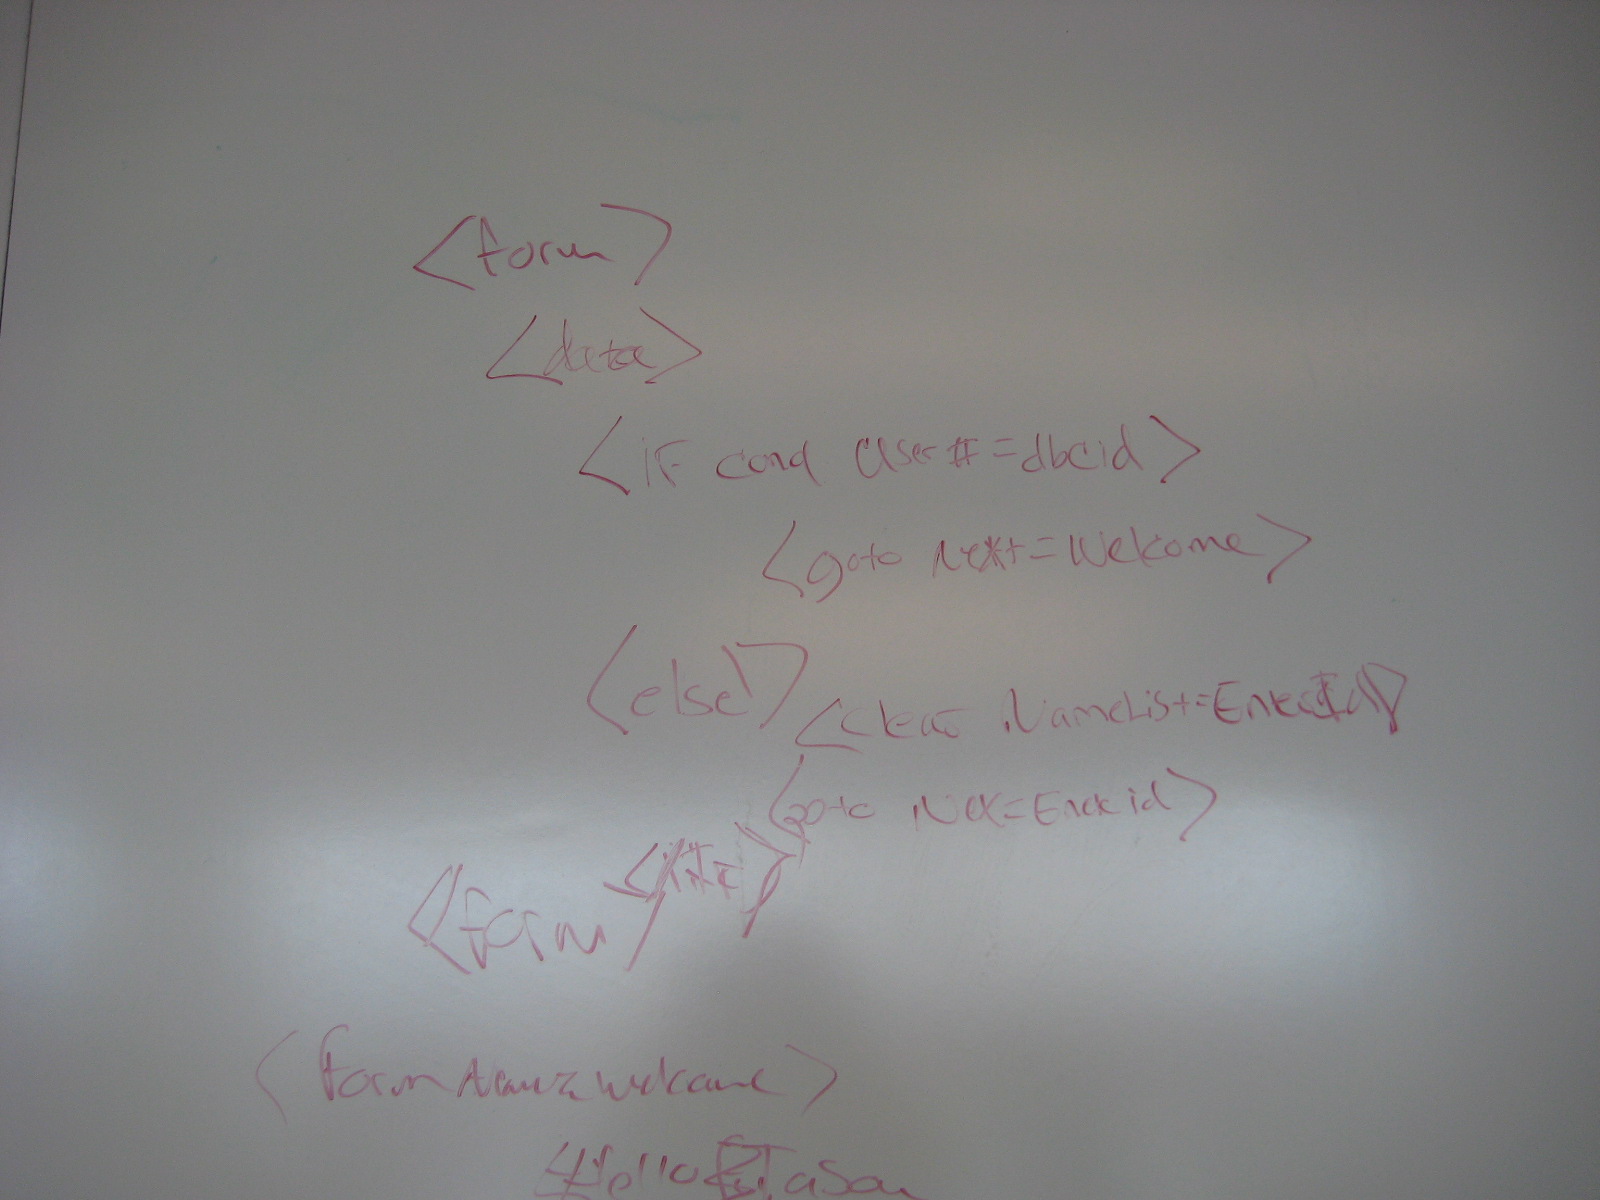 <form>
<data>
<if cond user#=dbcid>
<goto Next=Welcome>
<else>
<clear NameList=EnterId>
<goto Nex=Enter id>
</if>
<form>
<form Name=welcome>
Hello Jason